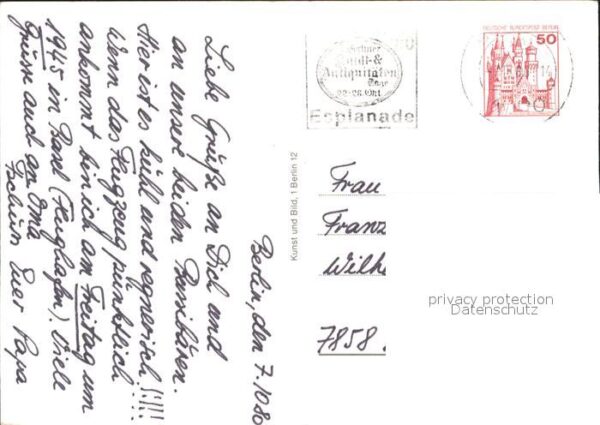 Berlin, den 7.10.80
Liebe Grüße an Dich und
an unsere beiden
Hier ist es kühl und regnerisch!!!!!
Wenn das Flugzeug pünktlich
ankommt bin ich am Freitag um
1945 in Basel (Flughafen). Viele
Grüsse auch an Oma
Tschüss Euer Papa
Kunst und Bild, 1 Berlin 12
Antiquitäten
Tage
Esplanade
DEUTSCHE BUNDESPOST BERLIN
50
Frau
Franz
Wilh
7858.
privacy protection
Datenschutz